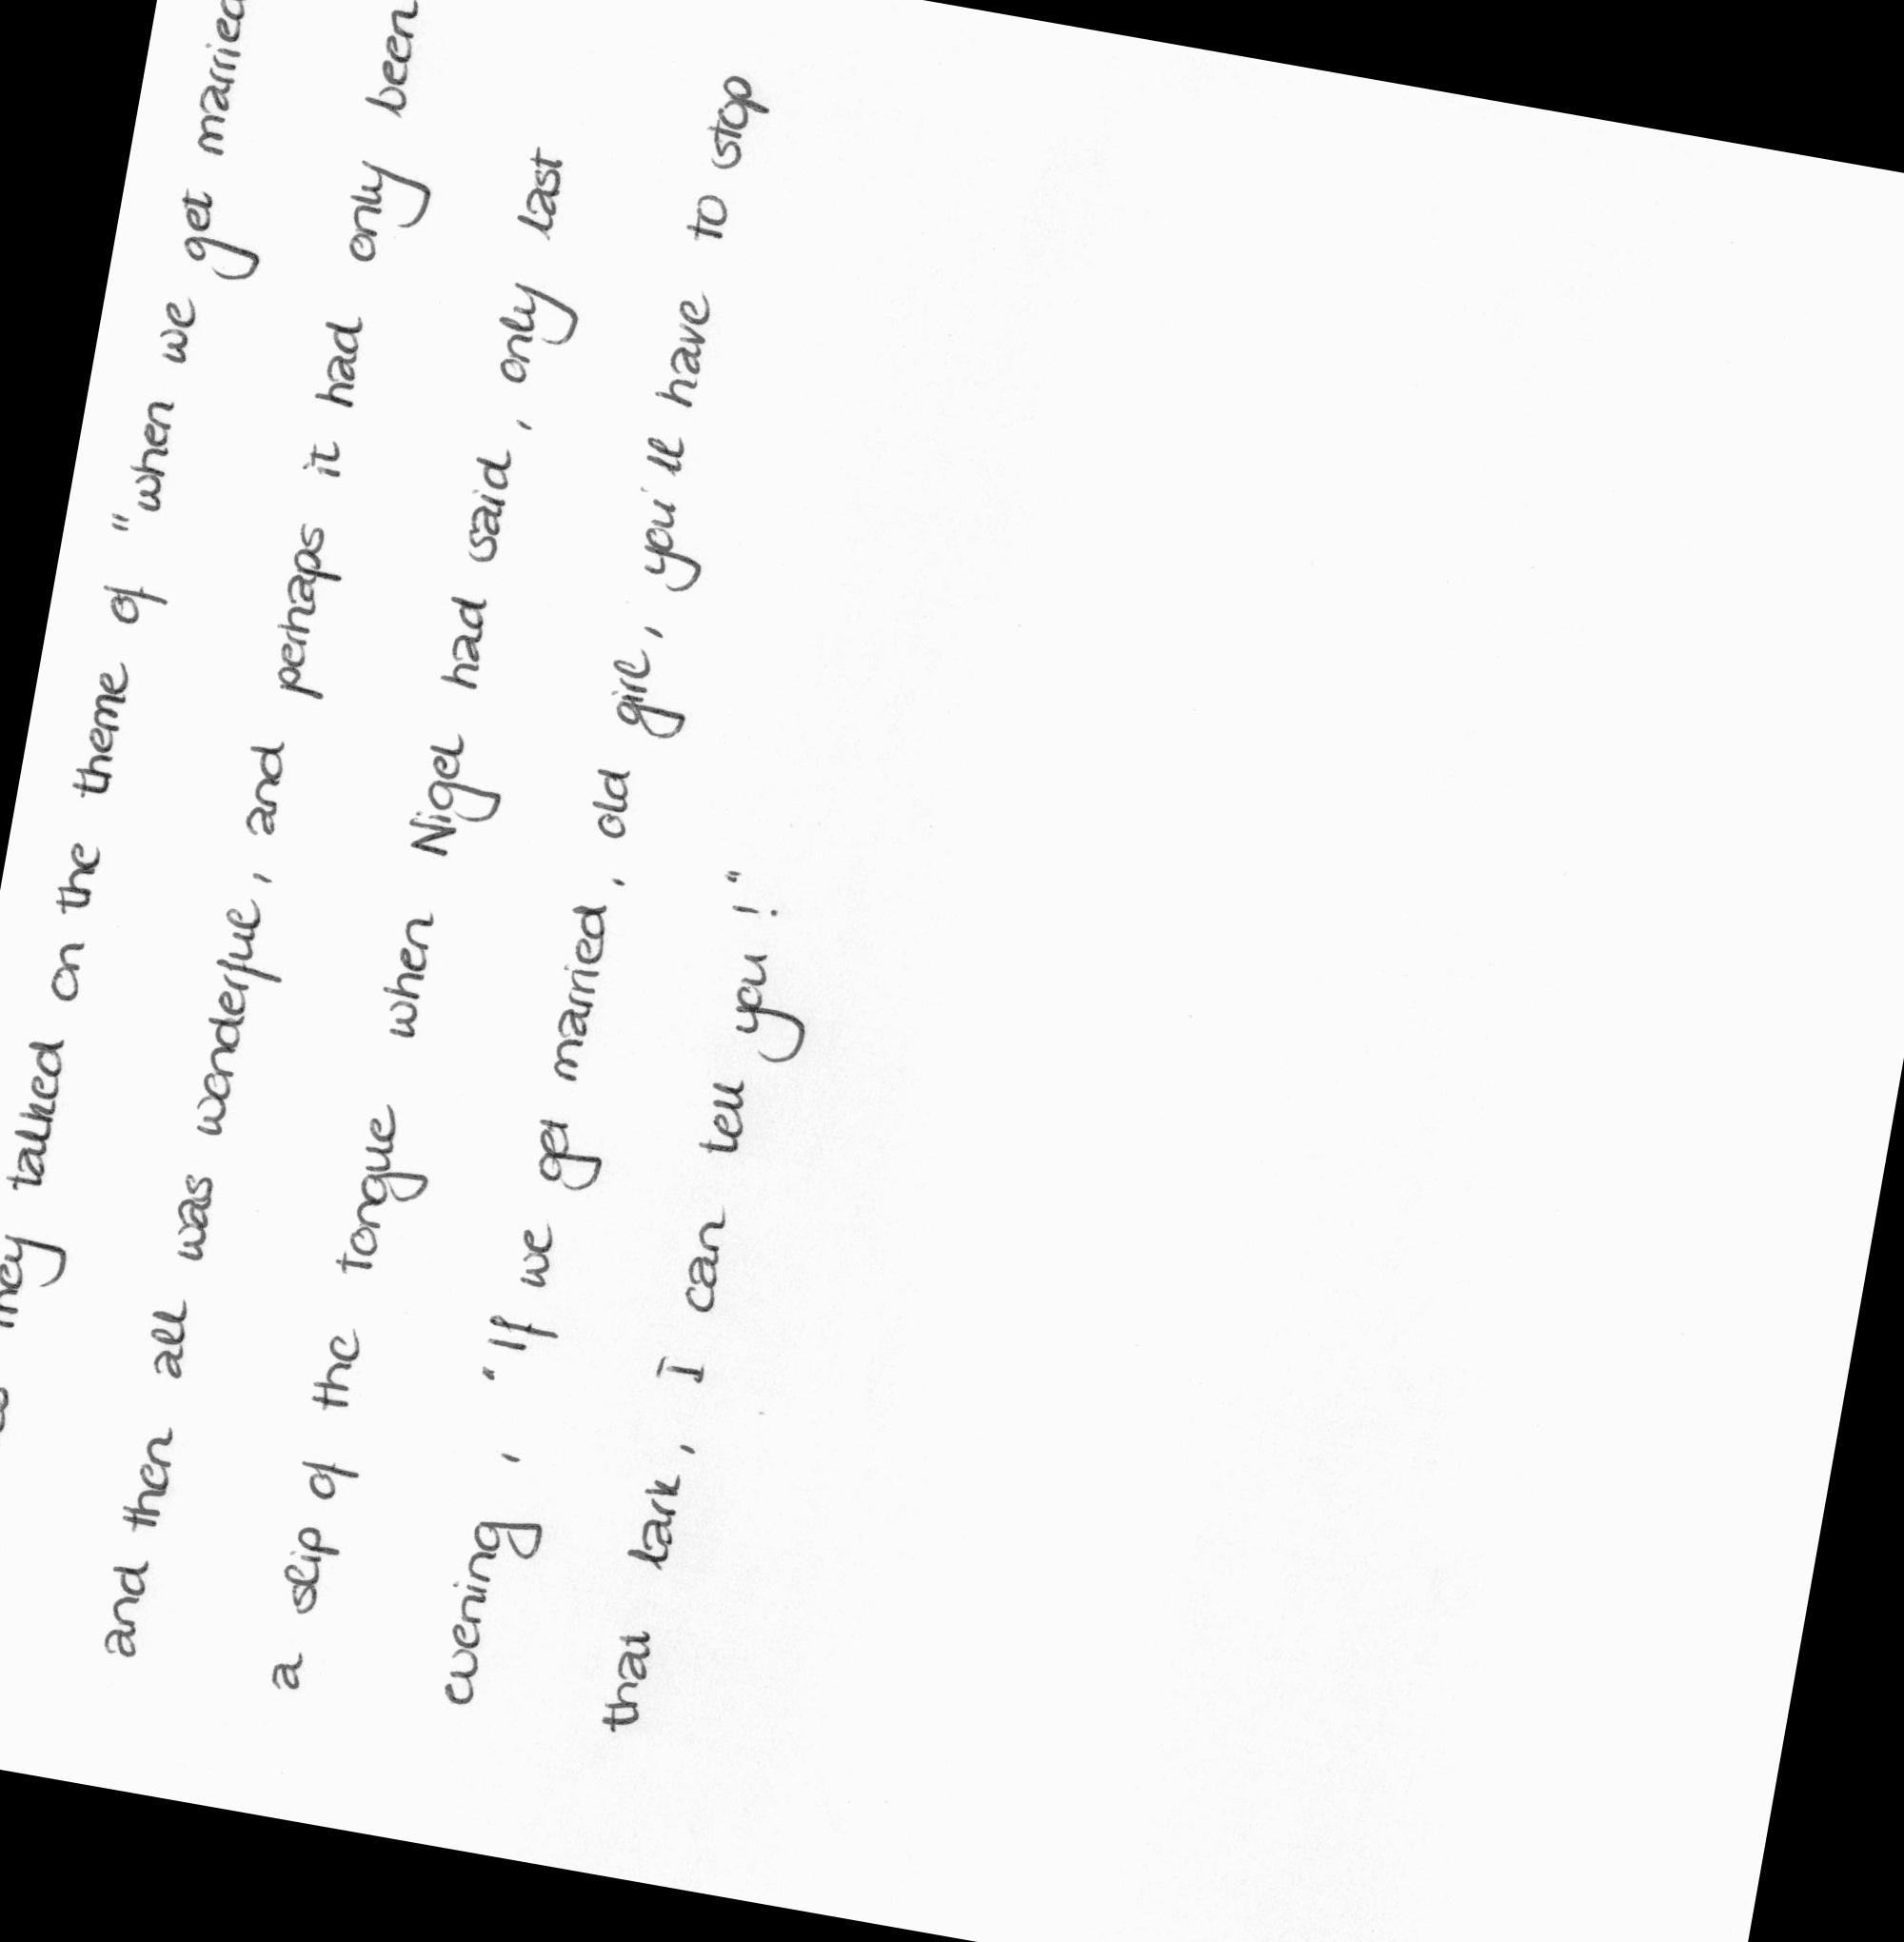 they talked on the theme of "when we get married
and then all was wonderful, and perhaps it had only been
a slip of the tongue when Nigel had said, only last
evening, "If we get married, old girl, you'll have to stop
that lark, I can tell you!"